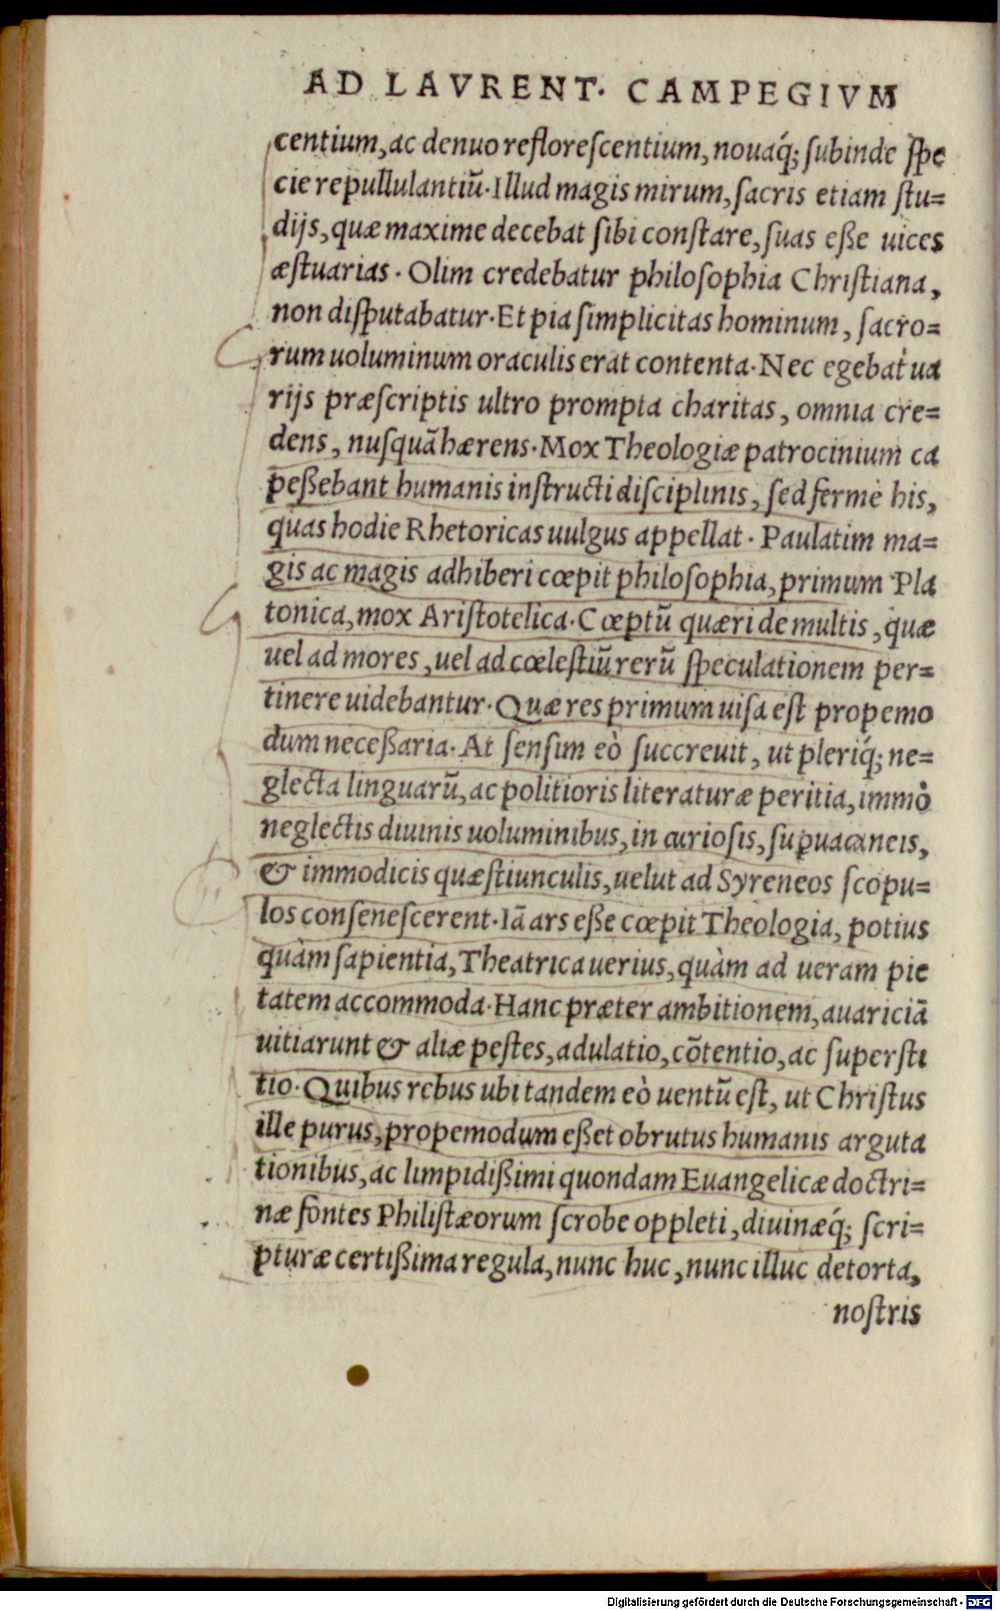 AD LAVRENT· CAMPEGIVM
centium, ac denuo refloreſcentium, nouaq́; ſubinde ſpe
cie repullulantiũ· Illud magis mirum, ſacris etiam ſtu=
dijs, quæ maxime decebat ſibi conſtare, ſuas eße uices
æſtuarias · Olim credebatur philoſophia Chriſtiana,
non diſputabatur· Et pia ſimplicitas hominum, ſacro=
rum uoluminum oraculis erat contenta· Nec egebat ua
rijs præſcriptis ultro prompta charitas, omnia cre=
dens, nuſquã hærens· Mox Theologiæ patrocinium ca
peßebant humanis inſtructi diſciplinis, ſed ferme his,
quas hodie Rhetoricas uulgus appellat · Paulatim ma=
gis ac magis adhiberi cœpit philoſophia, primum Pla
tonica, mox Ariſtotelica· Cœptũ quæri de multis, quæ
uel ad mores, uel ad cœleſtiũ rerũ ſpeculationem per=
tinere uidebantur· Quæ res primum uiſa eſt propemo
dum neceßaria· At ſenſim eò ſuccreuit, ut pleriq́; ne=
glecta linguarũ, ac politioris literaturæ peritia, immò
neglectis diuinis uoluminibus, in curioſis, ſupuacaneis,
& immodicis quæſtiunculis, uelut ad Syreneos ſcopu=
los conſeneſcerent· Iã ars eße cœpit Theologia, potius
quàm ſapientia, Theatrica uerius, quàm ad ueram pie
tatem accommoda· Hanc præter ambitionem, auariciã
uitiarunt & aliæ peſtes, adulatio, cõtentio, ac ſuperſti
tio· Quibus rebus ubi tandem eò uentũ eſt, ut Chriſtus
ille purus, propemodum eßet obrutus humanis arguta
tionibus, ac limpidißimi quondam Euangelicæ doctri=
næ fontes Philiſtæorum ſcrobe oppleti, diuinæq́; ſcri=
pturæ certißima regula, nunc huc, nunc illuc detorta,
noſtris
Digitalisierung gefördert durch die Deutsche Forschungsgemeinschaft · DFG